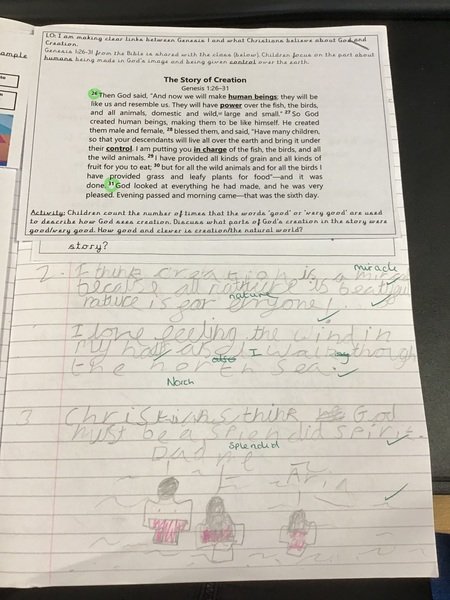 LO: I am making clear links between Genesis 1 and what Christians believe about God and
Creation.
Genesis 1:26-31 from the Bible is shared with the class (below). Children focus on the part about
humans being made in God's image and being given control over the earth.
ample
The Story of Creation
Genesis 1:26–31
26 Then God said, "And now we will make human beings; they will be
like us and resemble us. They will have power over the fish, the birds,
and all animals, domestic and wild, large and small." 27 So God
created human beings, making them to be like himself. He created
them male and female, 28 blessed them, and said, "Have many children,
so that your descendants will live all over the earth and bring it under
their control. I am putting you in charge of the fish, the birds, and all
the wild animals. 29 I have provided all kinds of grain and all kinds of
fruit for you to eat; 30 but for all the wild animals and for all the birds I
have provided grass and leafy plants for food"—and it was
done. 31 God looked at everything he had made, and he was very
pleased. Evening passed and morning came—that was the sixth day.
Activity: Children count the number of times that the words 'good' or 'very good' are used
to describe how God sees creation. Discuss what parts of God's creation in the story were
good/very good. How good and clever is creation/the natural world?
story?
miracle
2. I think creation is a
because all is
nature
nature is for
I love feeling the wind in
my and also I
the north sea.
North
3 think God
must be a splendid spirit.
splendid
Dad me